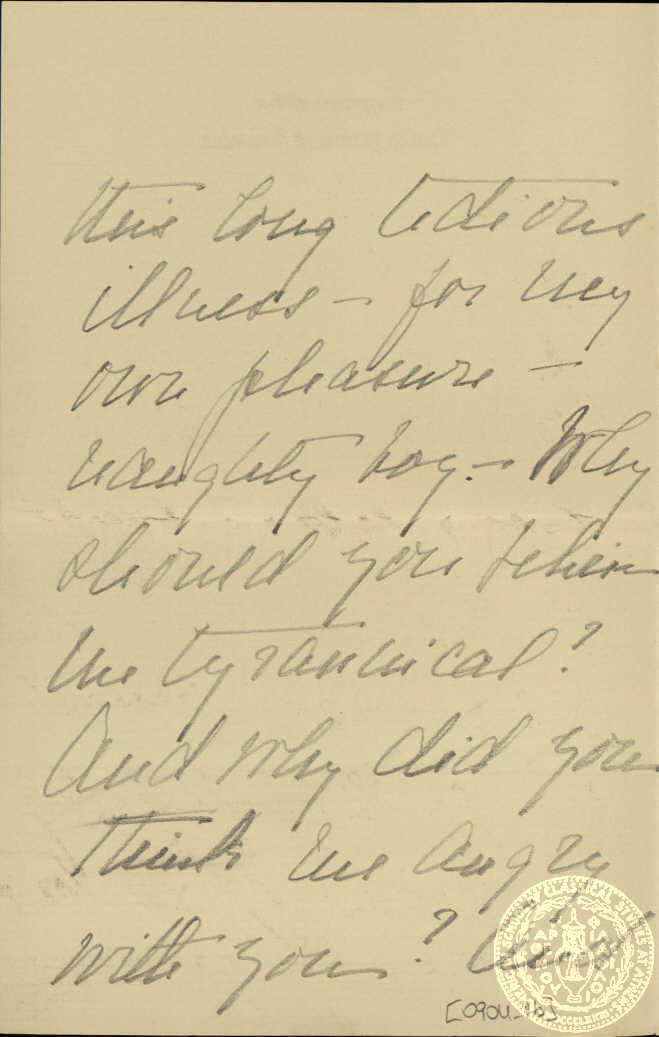 this long tedious
illness – for my
own pleasure –
naughty boy. – Why
should you believe
me tyrannical?
And why did you
think me angry
with you?
[090U_10]